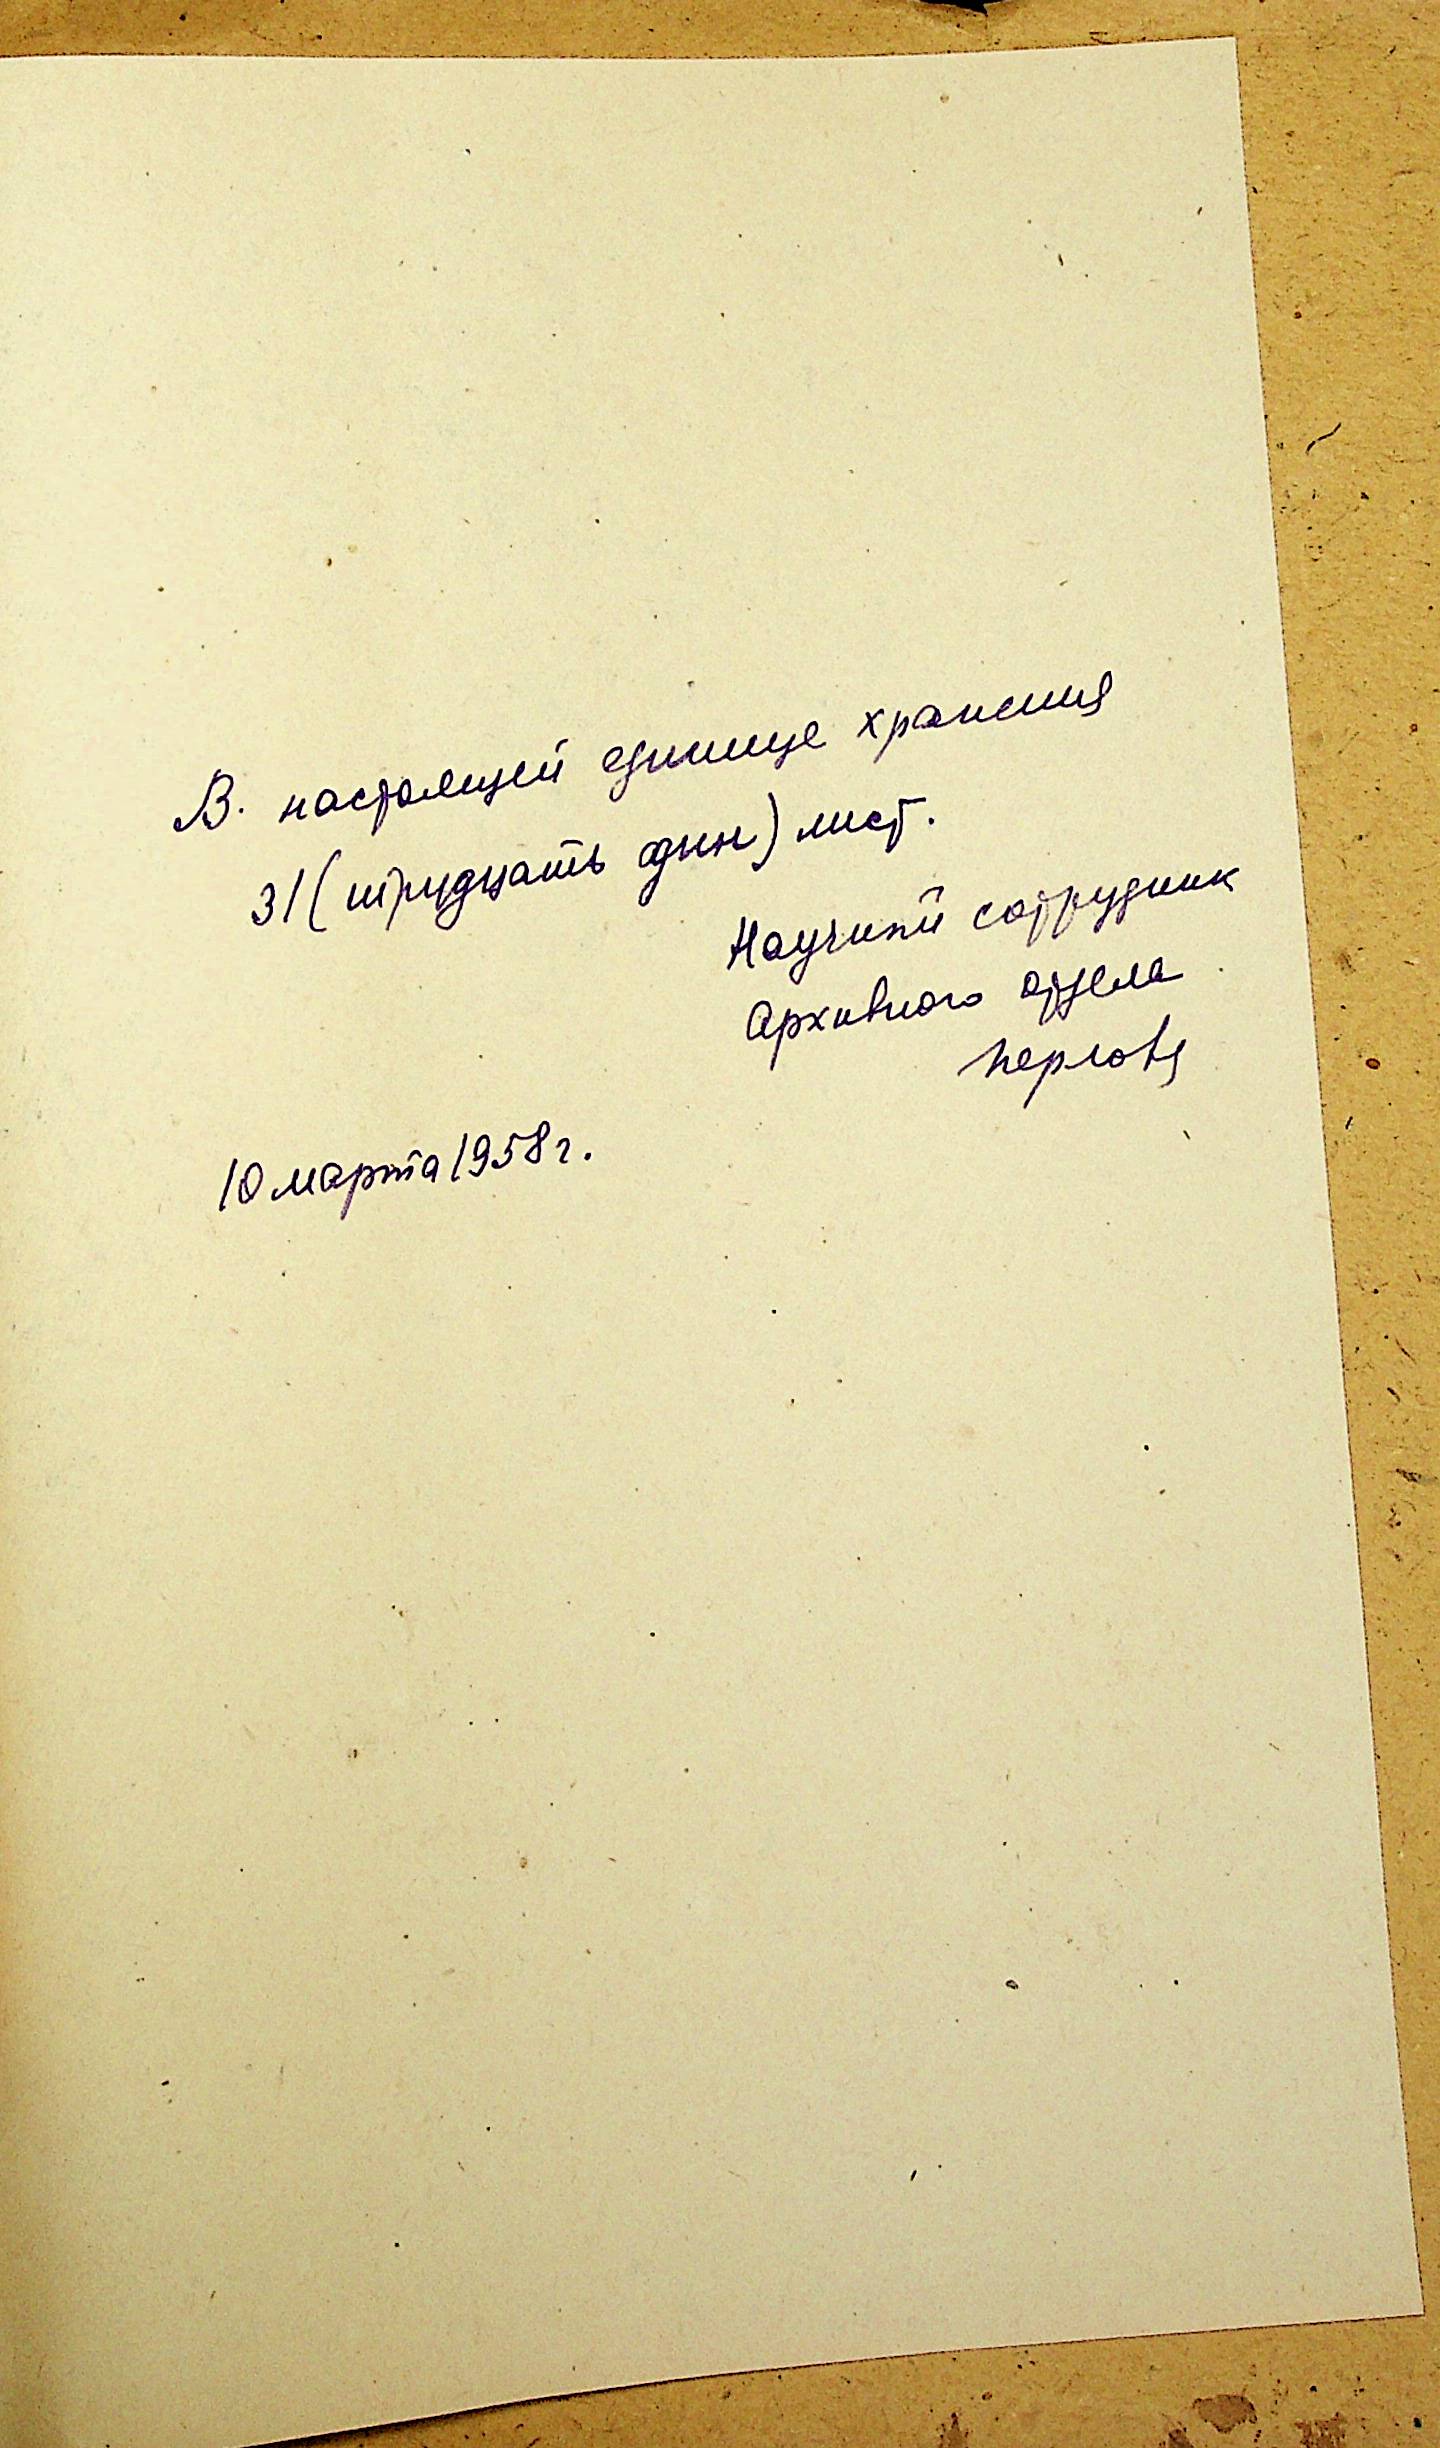 В. настоящей единице хранения
31 (тридцать один) лист.
Научный сотрудник
Архивного отдела
Перлова
10 марта 1958 г.